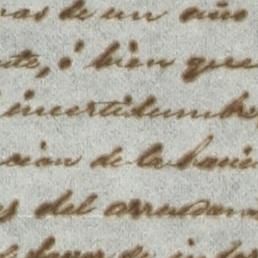 mas de un año
nte, ó bien que
incertidumb
cion de la hacie
s del arrenda